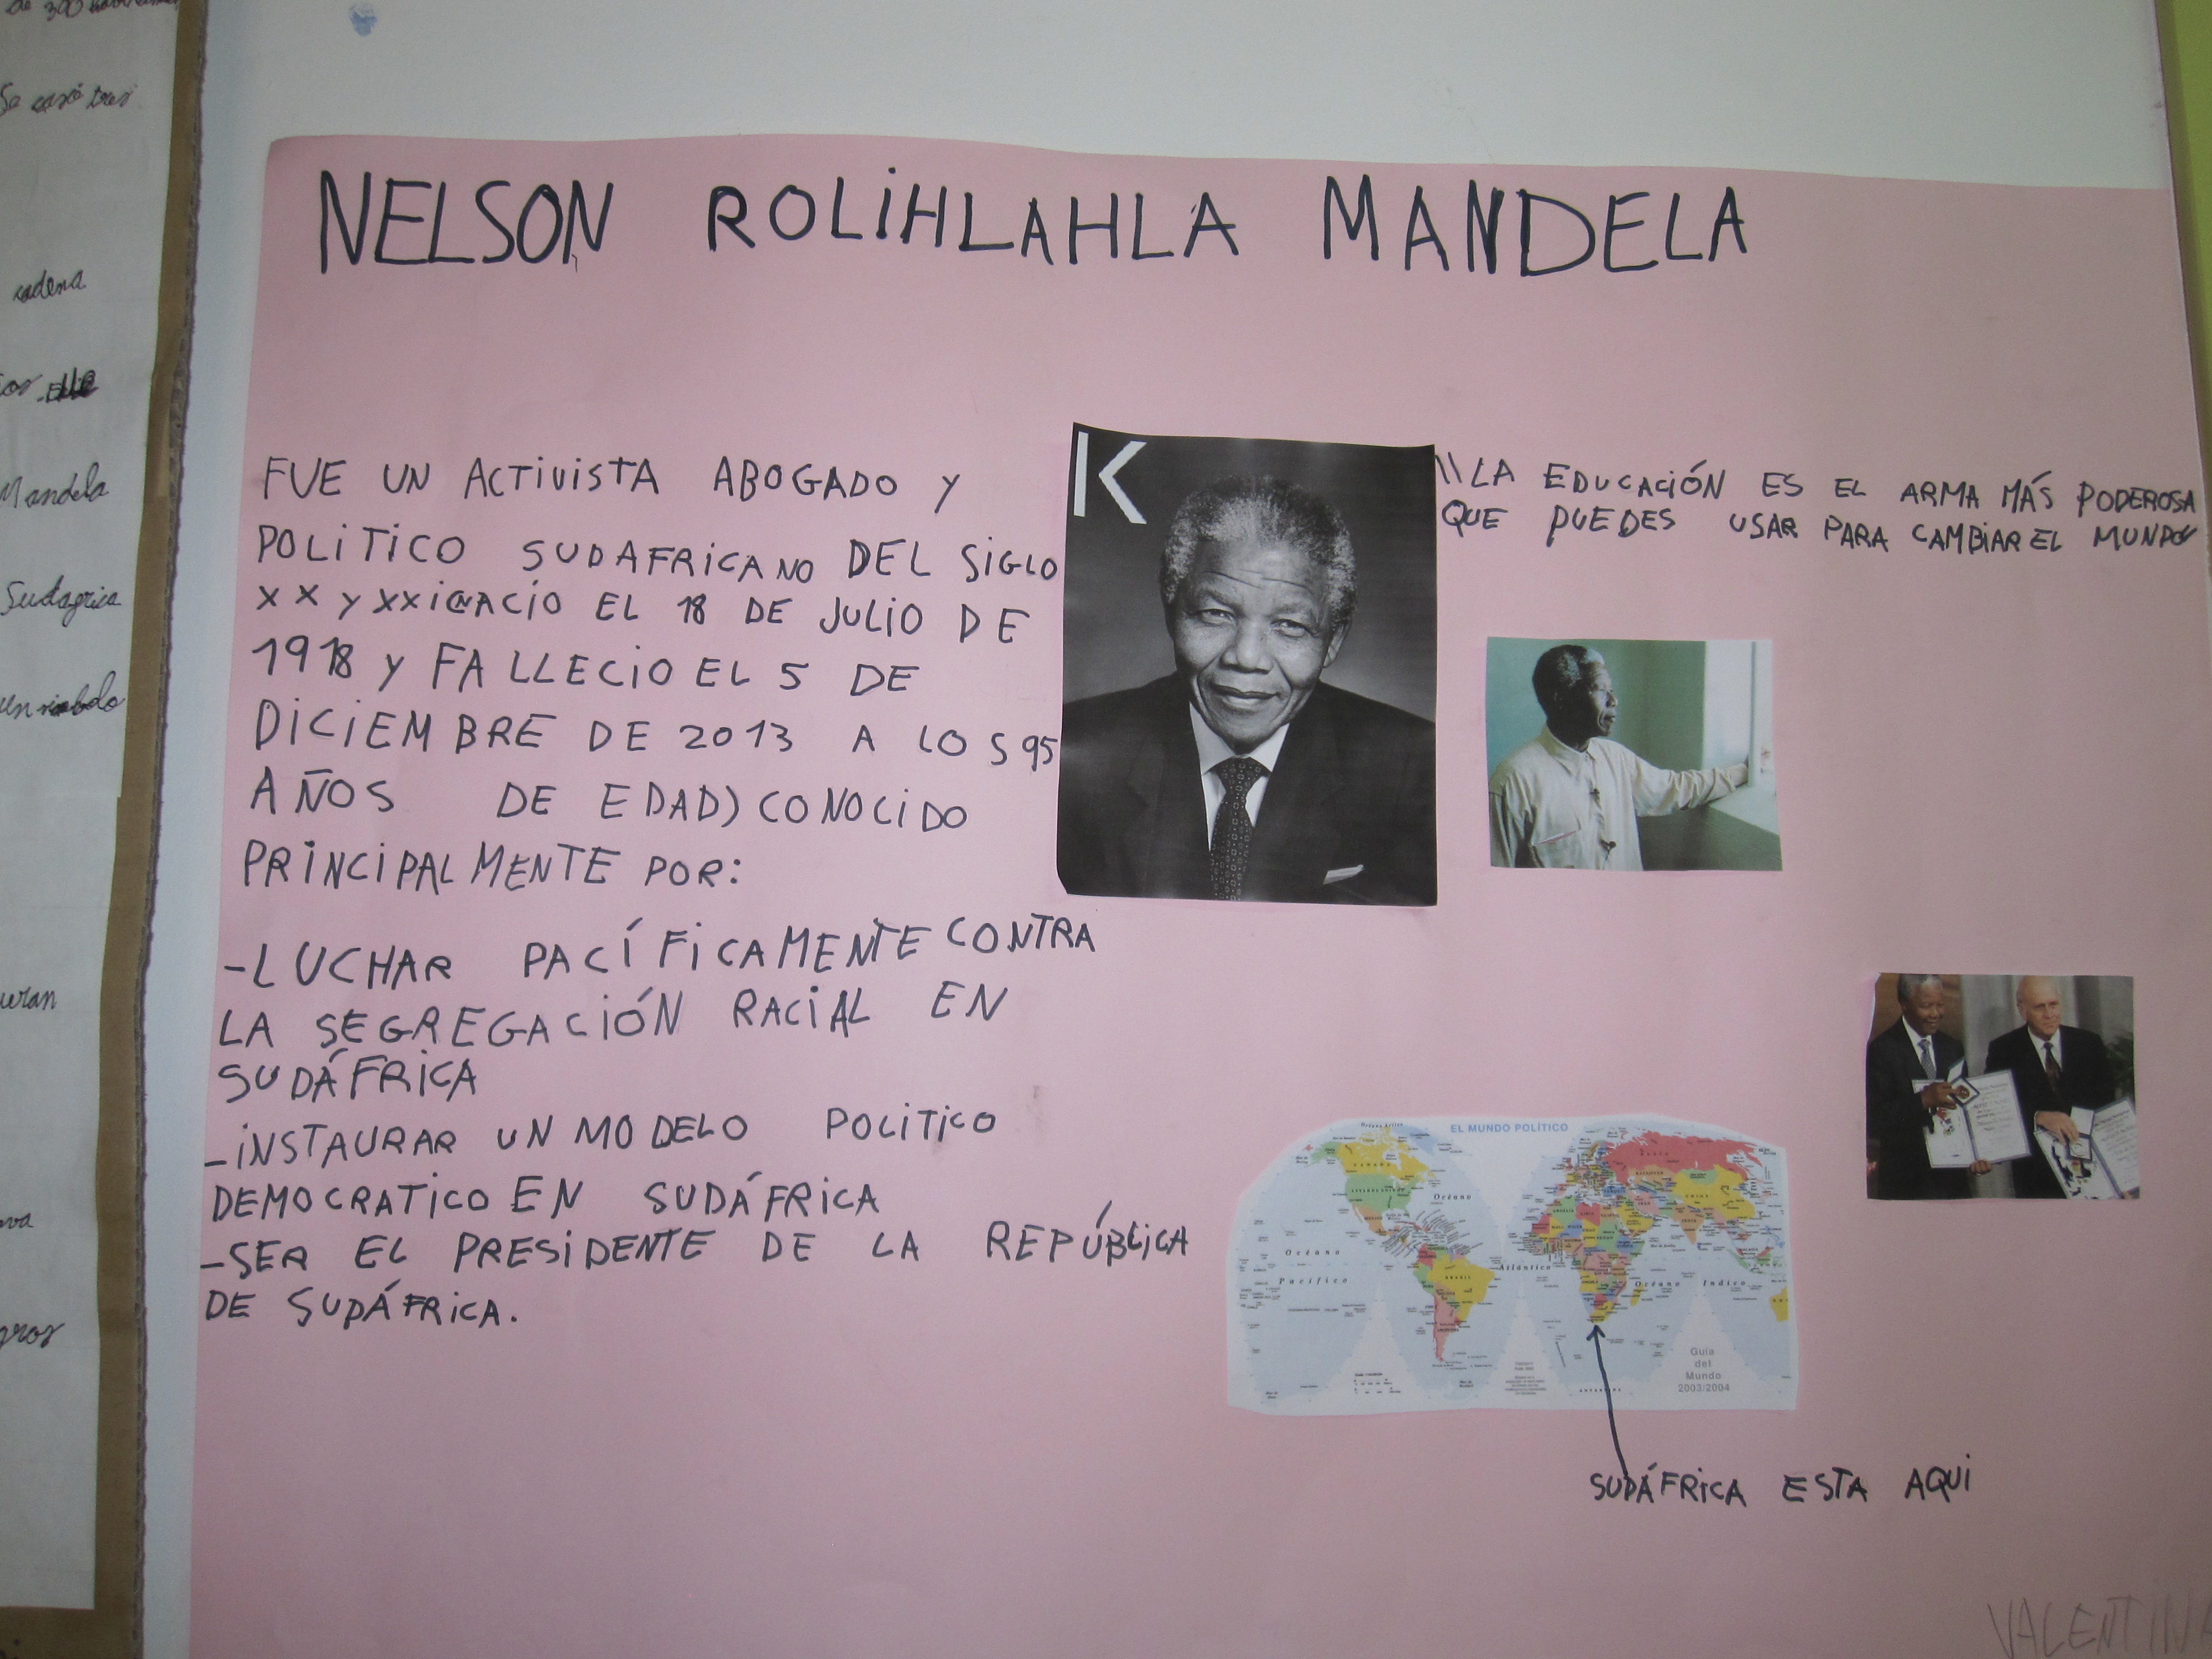 de 300
Se casó tres
cadena
Mandela
Sudagrica
un
gros
NELSON ROLIHLAHLA MANDELA
FUE UN ACTIVISTA ABOGADO Y
POLITICO SUDAFRICANO DEL SIGLO
XX Y XXI(NACÍO EL 18 DE JULIO DE
1918 Y FALLECIO EL 5 DE
DICIEMBRE DE 2013 A LOS 95
AÑOS DE EDAD) CONOCIDO
PRINCIPALMENTE POR:
-LUCHAR PACÍFICAMENTE CONTRA
LA SEGREGACIÓN RACIAL EN
SUDÁFRICA
-INSTAURAR UN MODELO POLITICO
DEMOCRATICO EN SUDÁFRICA
-SER EL PRESIDENTE DE LA REPÚBLICA
DE SUDÁFRICA.
K
"LA EDUCACIÓN ES EL ARMA MÁS PODEROSA
QUE PUEDES USAR PARA CAMBIAR EL MUNDO"
EL MUNDO POLÍTICO
CANADA
RUSIA
CHINA
INDIA
BRASIL
Océano
Pacífico
Océano
Atlántico
Océano Indico
Guía
del
Mundo
2003/2004
SUDÁFRICA ESTA AQUI
VALENTINA